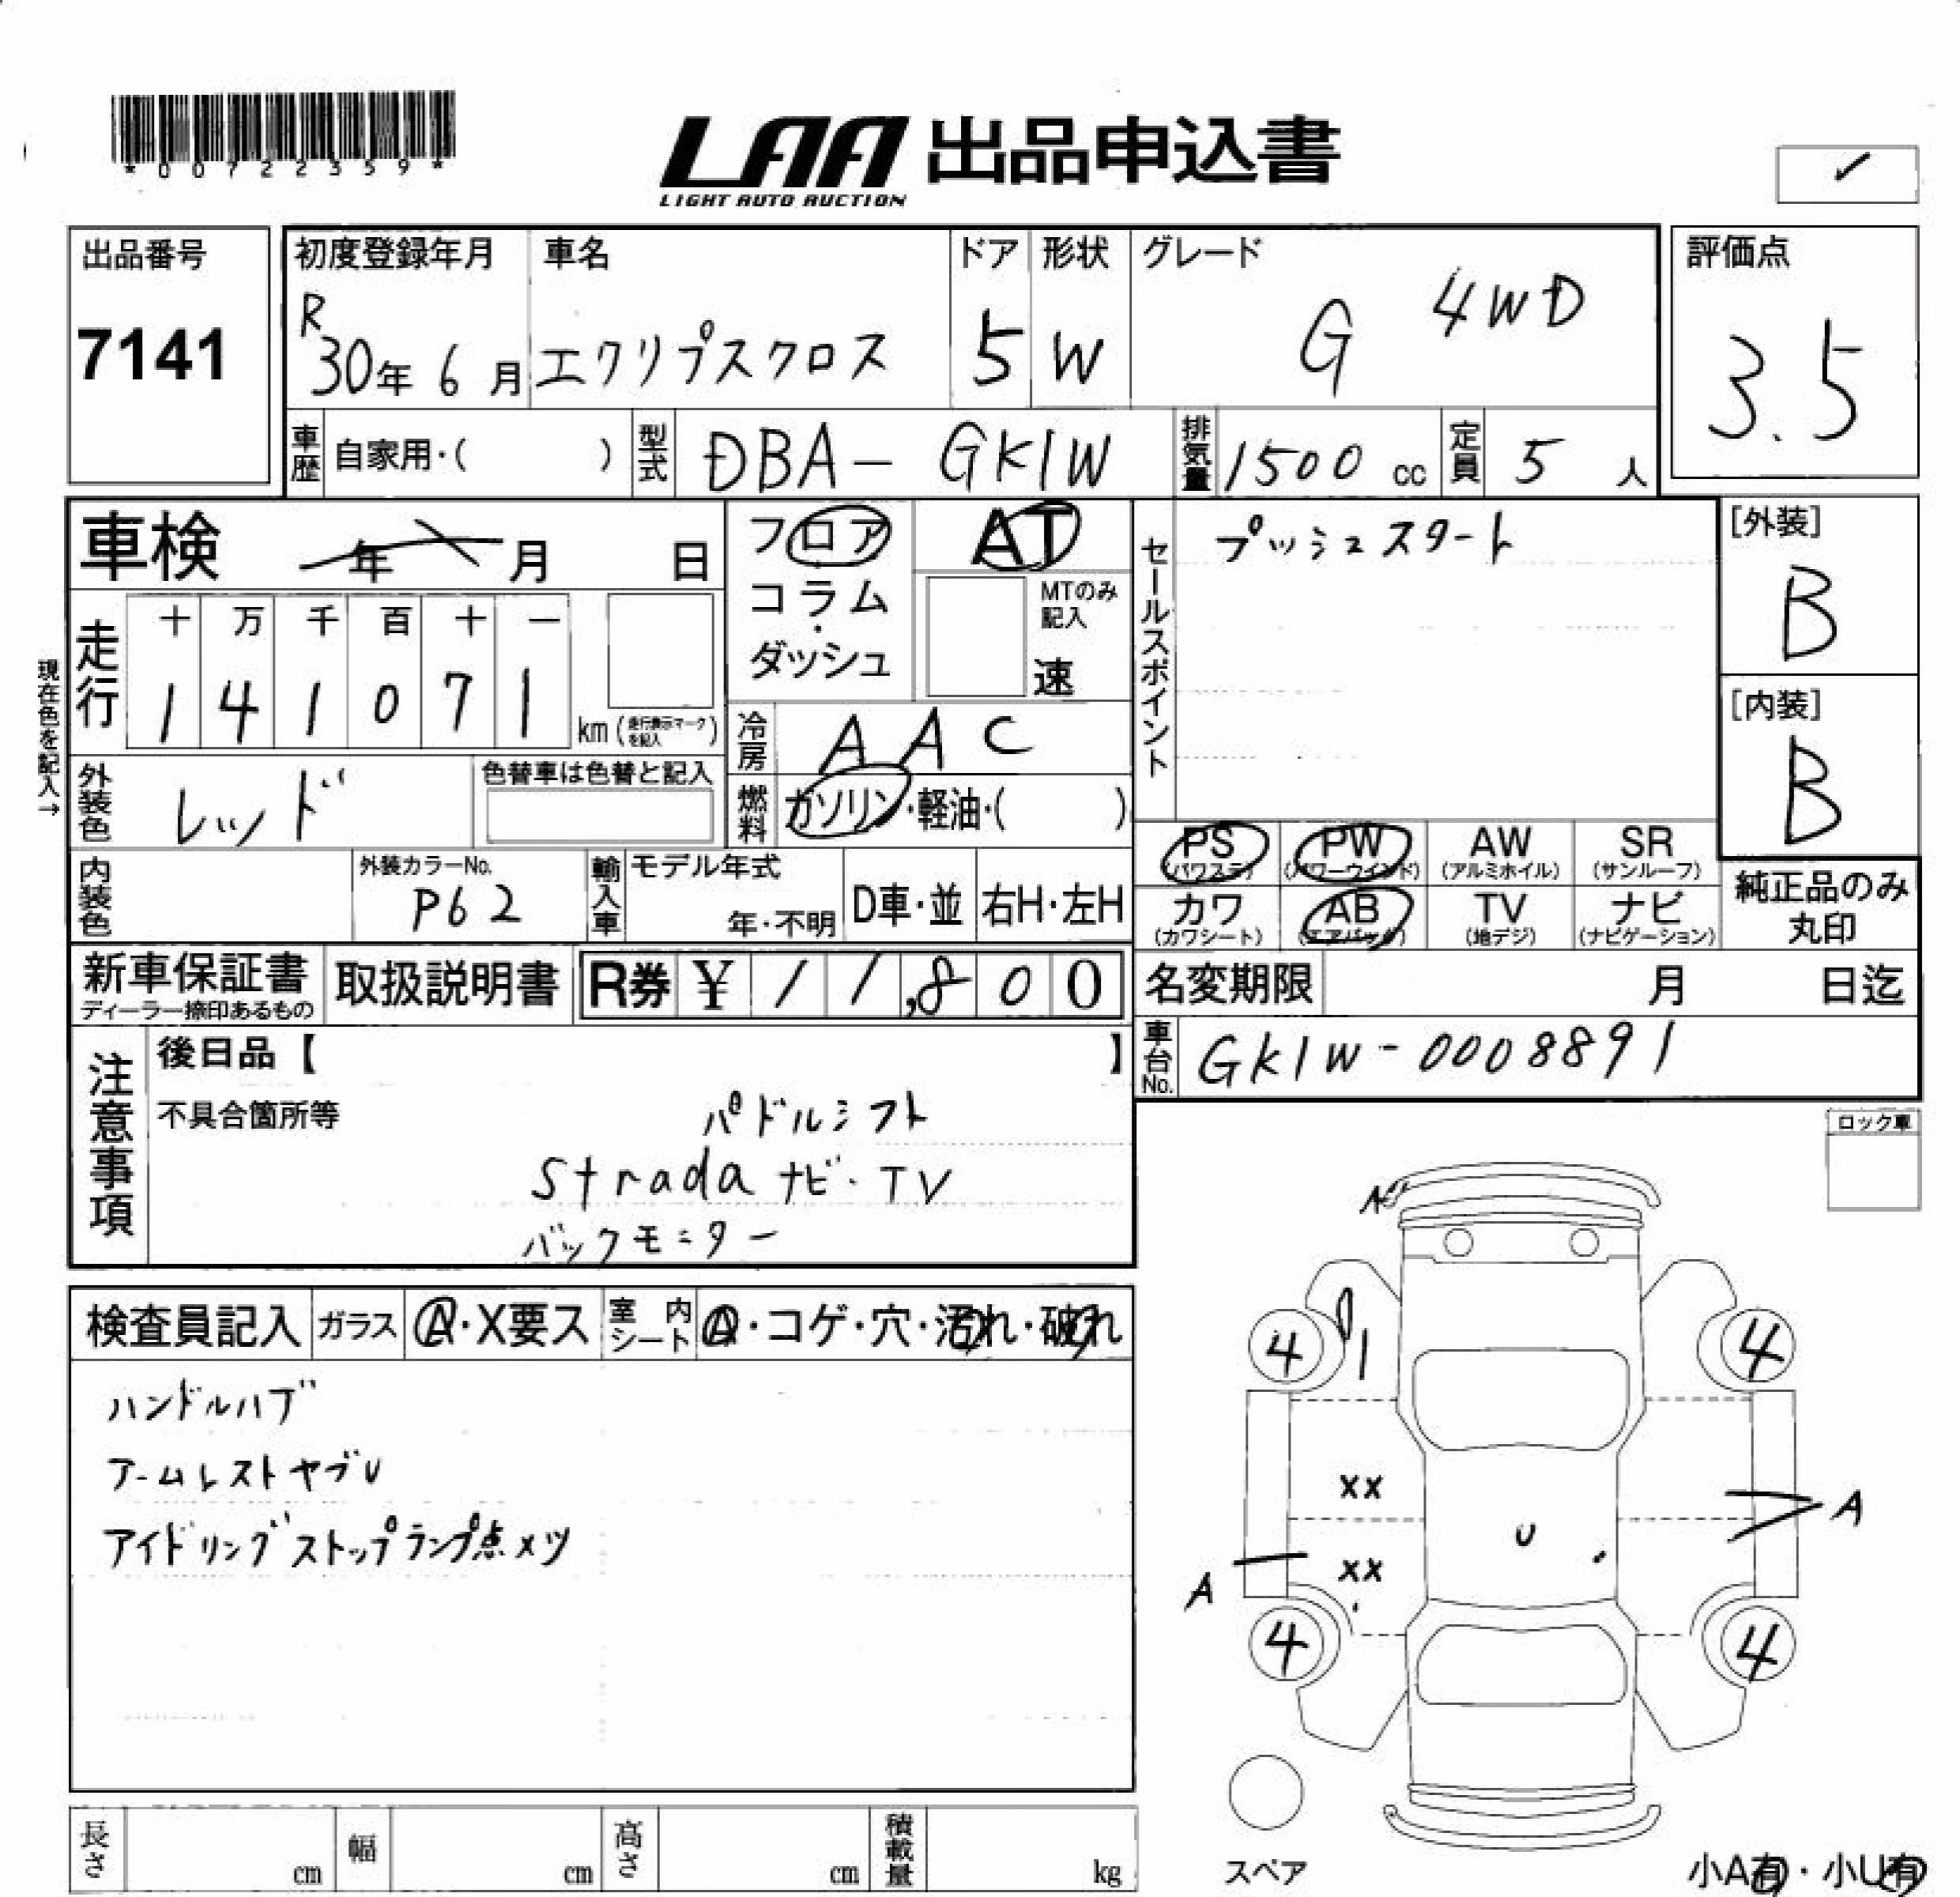 *00722359*
LAA 出品申込書
LIGHT AUTO AUCTION
出品番号
7141
初度登録年月
R
30年 6月
車名
エクリプスクロス
ドア
5
形状
W
グレード
G 4WD
評価点
3.5
車歴 自家用・( )
型式 DBA- GK1W
排気量 1500 cc
定員 5 人
車検 年 月 日
フロア
コラム・
ダッシュ
AT
MTのみ記入
速
セールスポイント
プッシュスタート
[外装]
B
[内装]
B
現在色を記入→
走行
十 万 千 百 十 一
1 4 1 0 7 1
km (走行表示マークを記入)
冷房 AAC
外装色 レッド
色替車は色替と記入
燃料 ガソリン・軽油・( )
内装色
外装カラーNo.
P62
輸入車
モデル年式
年・不明
D車・並
右H・左H
PS (パワステ)
PW (パワーウインド)
AW (アルミホイル)
SR (サンルーフ)
カワ (カワシート)
AB (エアバック)
TV (地デジ)
ナビ (ナビゲーション)
純正品のみ
丸印
新車保証書
ディーラー捺印あるもの
取扱説明書
R券 ¥ 11,800
名変期限 月 日迄
車台No. GK1W-0008891
注意事項
後日品【 】
不具合箇所等
パドルシフト
Strada ナビ・TV
バックモニター
ロック車
検査員記入
ガラス A・X要ス
室内シート A・コゲ・穴・汚れ・破れ
ハンドルハブ
アームレストヤブレ
アイドリングストップランプ点メツ
4 4
XX
U
A
XX
A
4 4
スペア
長さ cm
幅 cm
高さ cm
積載量 kg
小A有・小U有